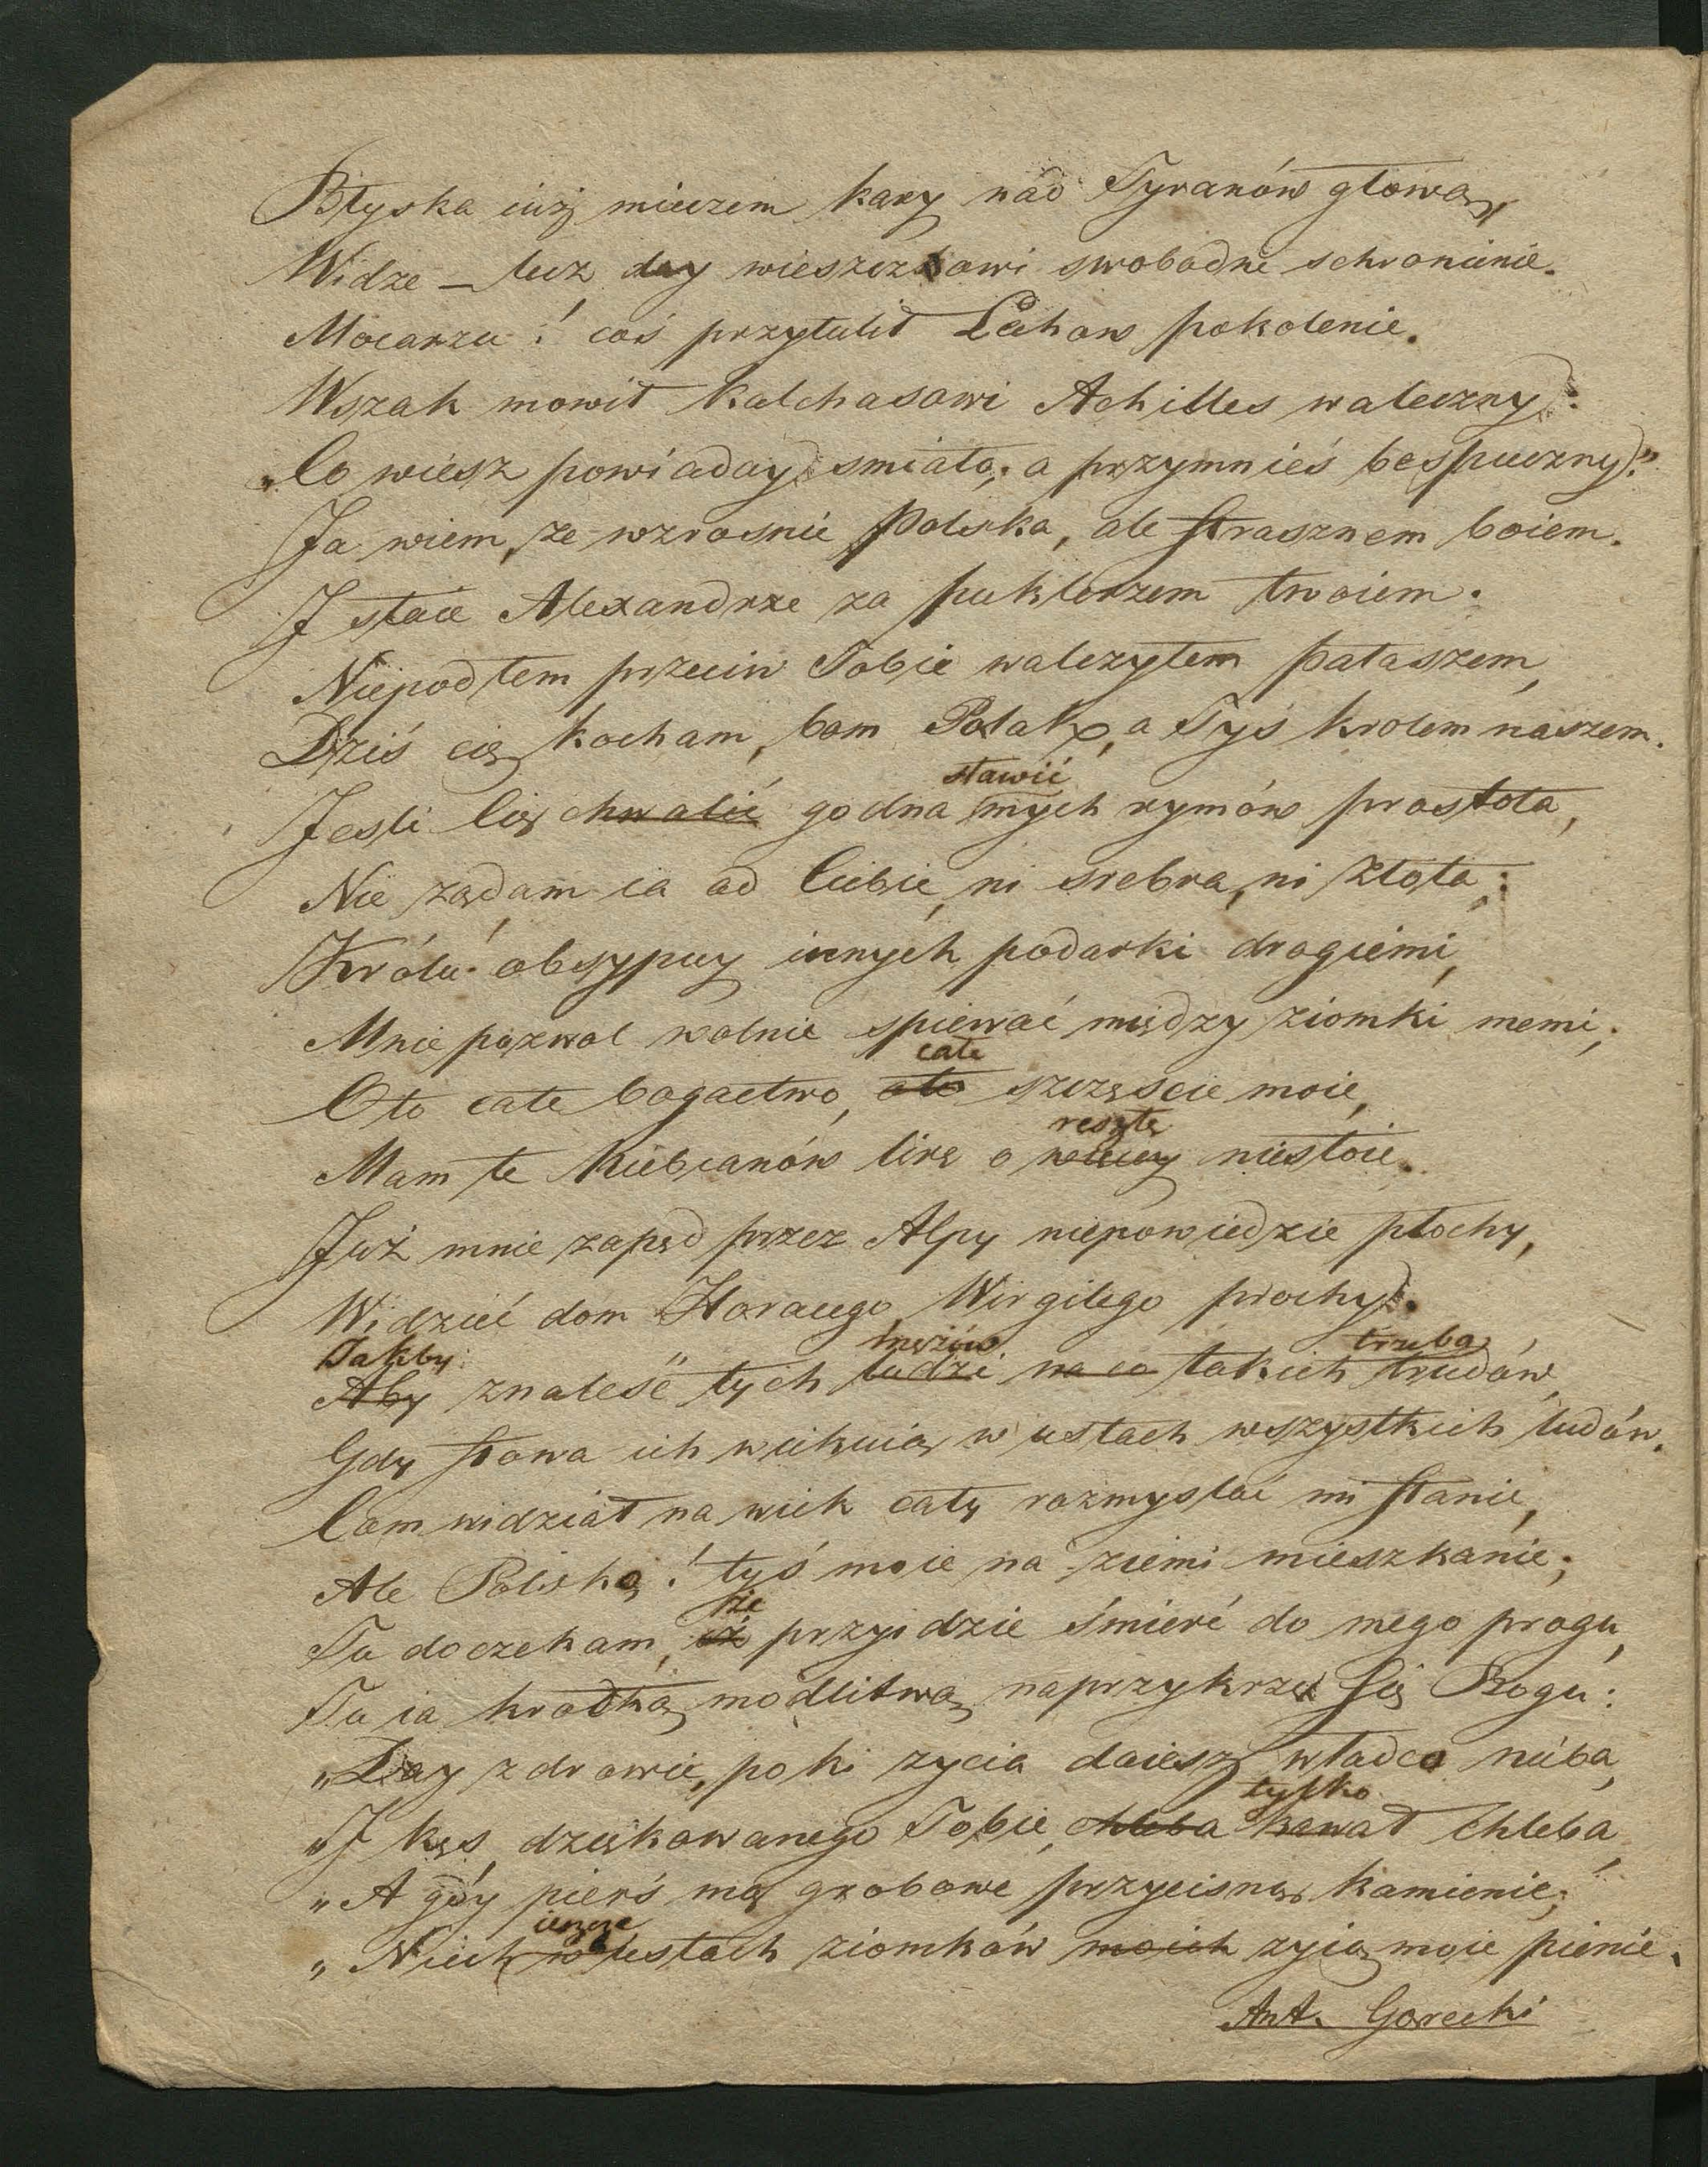 Błyska iuż mieczem kary nad Tyranów głową,
Widze – lecz day wieszczkowi swobodne schronienie.
Mocarzu! coś przytulił Lachow pokolenie.
Wszak mowił Kalchasowi Achilles waleczny:
„Co wiesz powiaday smiało; a przymnieś bespieczny."
Ja wiem, że wzrosnie Polska, ale strasznem boiem.
J staie Alexandrze za puklerzem twoiem.
Niepodłem przeciw Tobie walczyłem pałaszem,
Dziś cię kocham, bom Polak, a Tyś krolem naszem.
sławić
Jesli Cię chwalić godna mych rymów prostota,
Nie żądam ia od Ciebie, ni srebra, ni złota:
Królu! obsypuy innych podarki drogiemi,
Mnie pozwol wolnie spiewać między ziomki memi;
całe
Oto całe bogactwo, oto szczęscie moie,
resztę
Mam te Kniebianów lirę o więcey niestoię.
Już mnie zapęd przez Alpy niepowiedzie płochy,
Widzieć dom Horacego, Wirgilego prochy.
Jakby mężów trzeba
Aby znaleść tych ludzi na co takich trudów,
Gdy słowa ich wiekuią w ustach wszystkich ludów.
Com widział na wiek cały rozmyslać mi stanie,
Ale Polsko! tyś moie na ziemi mieszkanie;
że
Tu doczekam, iż przyidzie śmierć do mego progu,
Tu ia krotką modlitwą naprzykrzę się Bogu:
„Day zdrowie, poki zycia daiesz władco nieba,
tylko
„J kęs dziękowanego Tobie, chleba kawał chleba,
„A gdy pierś mą grobowe przycisną kamienie;
ieszcze
„Niech w ustach ziomków moich zyią moie pienie.
Ant. Gorecki